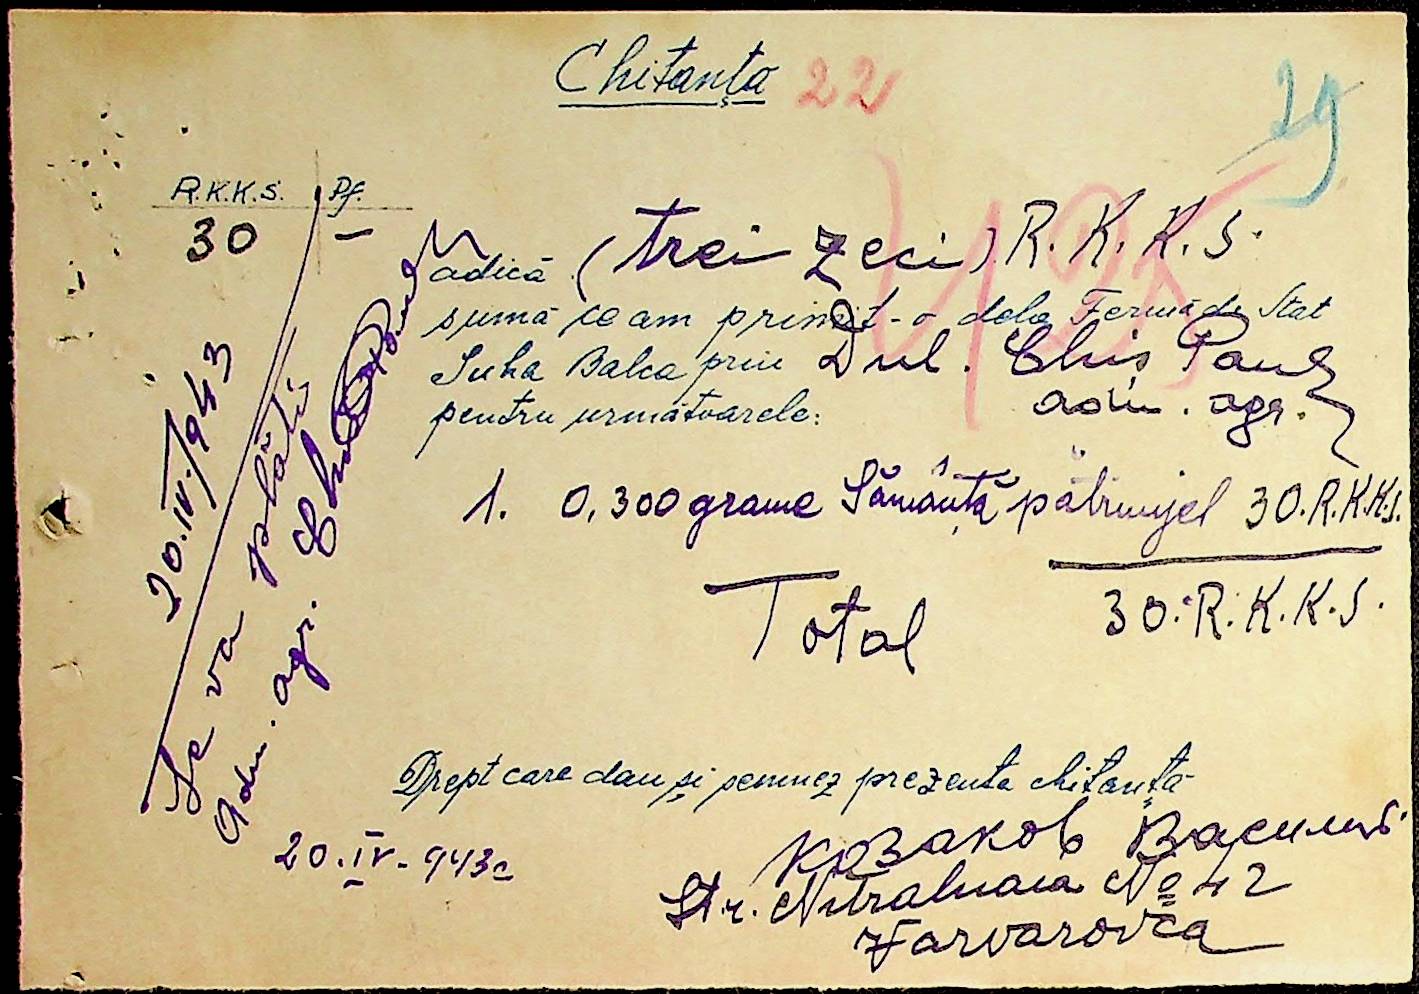 Chitanța 22
29
R.K.K.S. Pf.
30 —
adică (trei zeci) R.K.K.S.
125
sumă ce am primit-o dela Ferma de Stat
Suha Balca prin Dul. Chis Paul
pentru următoarele: adm. agr.
1. 0,300 grame Sămânță pătrunjel 30.R.K.K.S.
Total 30.R.K.K.S.
Drept care dau și semnez prezenta chitanță
20.IV-943
Козаков Василий
Str. № 42
Varvarovca
20.IV.1943
Se va plăti
Adm. agr. Chis Paul